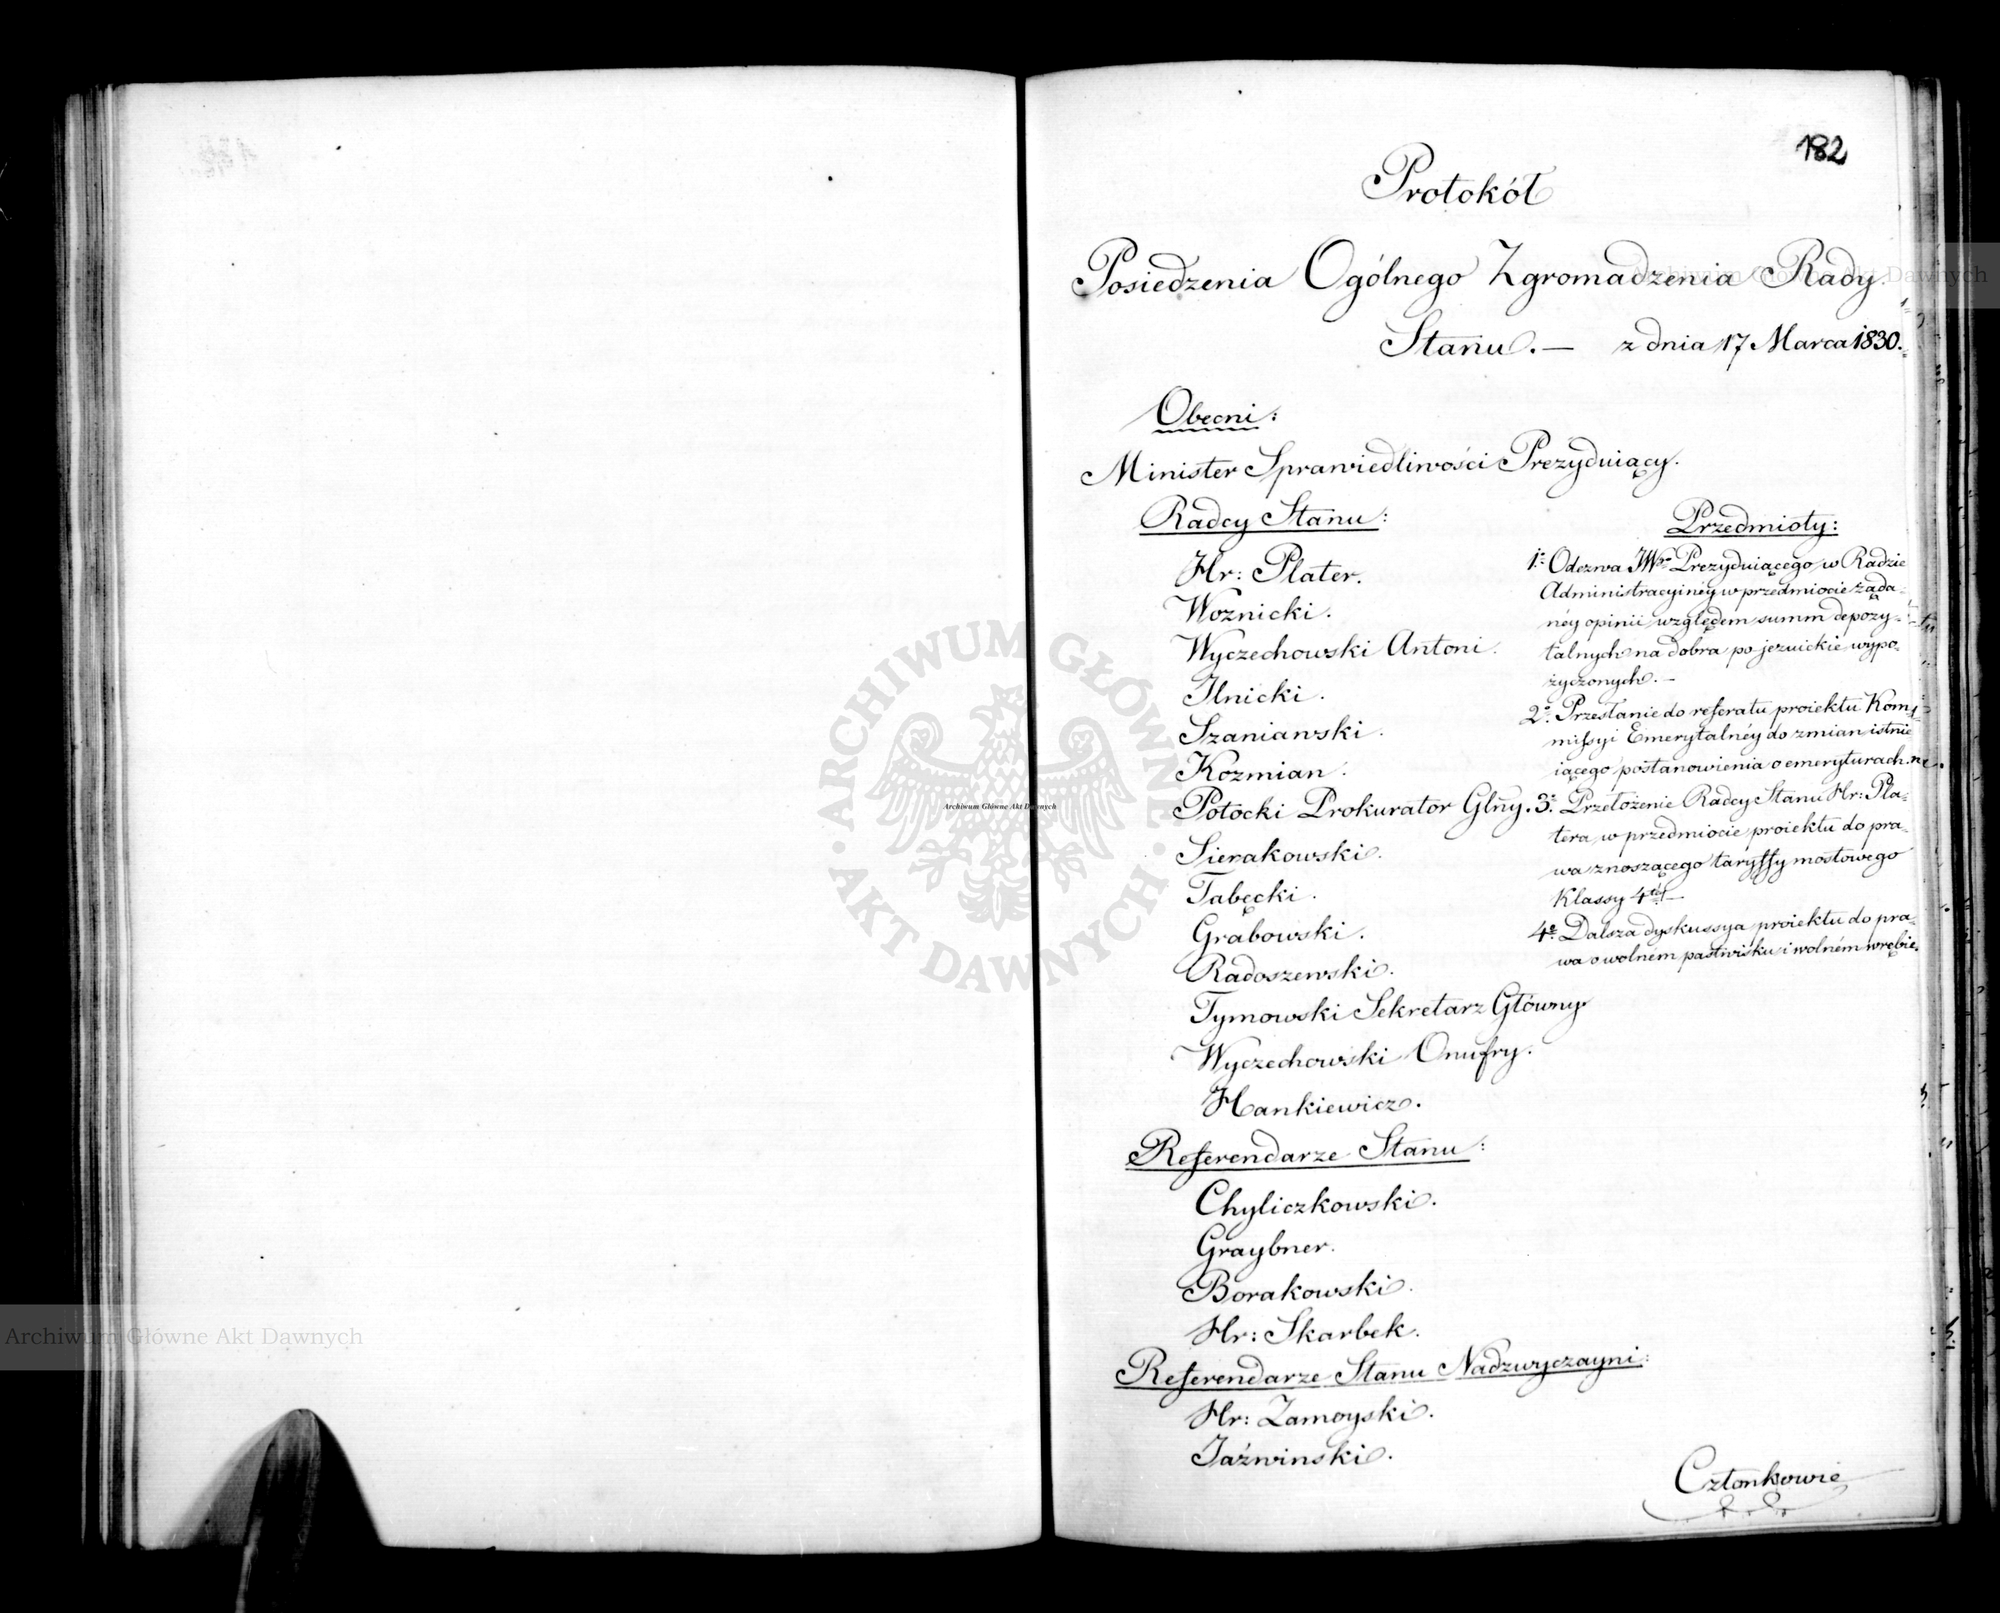 182
Protokół
Posiedzenia Ogólnego Zgromadzenia Rady
Stanu. — z dnia 17 Marca 1830.
Obecni:
Minister Sprawiedliwości Prezyduiący.
Radcy Stanu:
Hr: Plater.
Woznicki.
Wyczechowski Antoni.
Ilnicki.
Szaniawski.
Kozmian.
Potocki Prokurator Glny.
Sierakowski.
Tabęcki.
Grabowski.
Radoszewski.
Tymowski Sekretarz Główny
Wyczechowski Onufry.
Hankiewicz.
Referendarze Stanu:
Chyliczkowski.
Graybner.
Borakowski.
Hr: Skarbek.
Referendarze Stanu Nadzwyczayni:
Hr: Zamoyski.
Jaźwinski.
Przedmioty:
1º Odezwa JWgo Prezyduiącego w Radzie
Administracyinéy w przedmiocie żąda-
néy opinii względem summ depozy-
talnych na dobra po jezuickie wypo-
życzonych. —
2º Przesłanie do referatu proiektu Kom-
missyi Emerytalnéy do zmian istnie
iącego postanowienia o emeryturach.
3º Przełożenie Radcy Stanu Hr: Pla-
tera, w przedmiocie proiektu do pra-
wa znoszącego taryffy mostowego
Klassy 4téy —
4º Dalsza dyskussya proiektu do pra-
wa o wolném pastwisku i wolném wrębie.
Członkowie
Archiwum Główne Akt Dawnych
Archiwum Główne Akt Dawnych
Archiwum Główne Akt Dawnych
· ARCHIWUM GŁÓWNE · AKT DAWNYCH